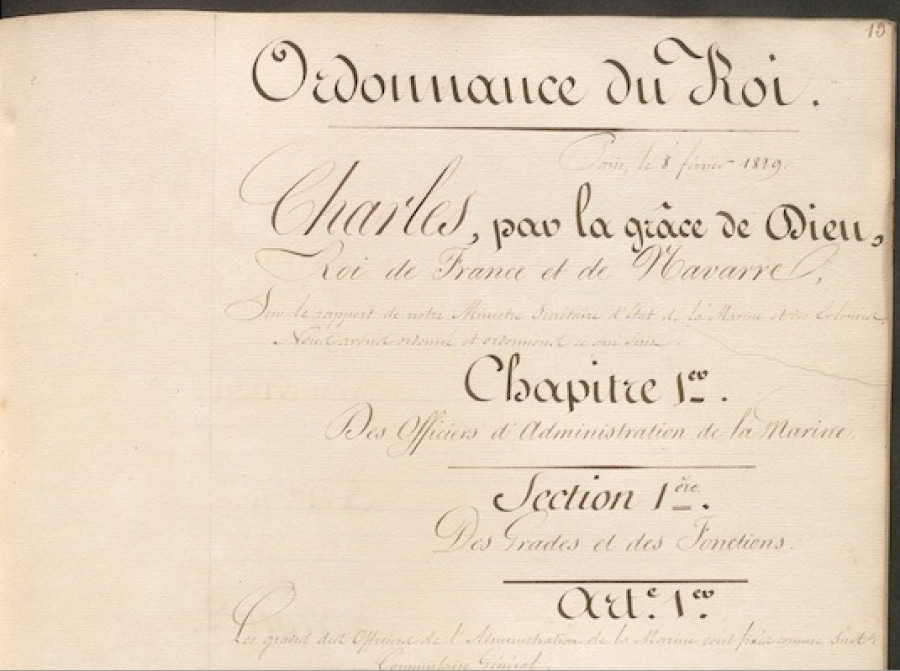 15
Ordonnance du Roi.
Paris, le 8 février 1829.
Charles, par la grâce de Dieu,
Roi de France et de Navarre,
Sur le rapport de notre Ministre Secrétaire d'État de la Marine et des Colonies,
Nous avons ordonné et ordonnons ce qui suit.
Chapitre 1er.
Des Officiers d'Administration de la Marine.
Section 1ère.
Des Grades et des Fonctions.
Arte. 1er.
Les grades des Officiers de l'Administration de la Marine sont fixés comme Suit:
Commissaire Général.